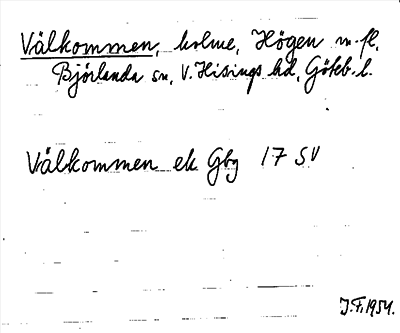 Välkommen, holme, Högen m. fl.
Björlanda sn, V. Hisings hd, Göteb. l.
Välkommen ek Gbg 17 SV
J.F. 1954.